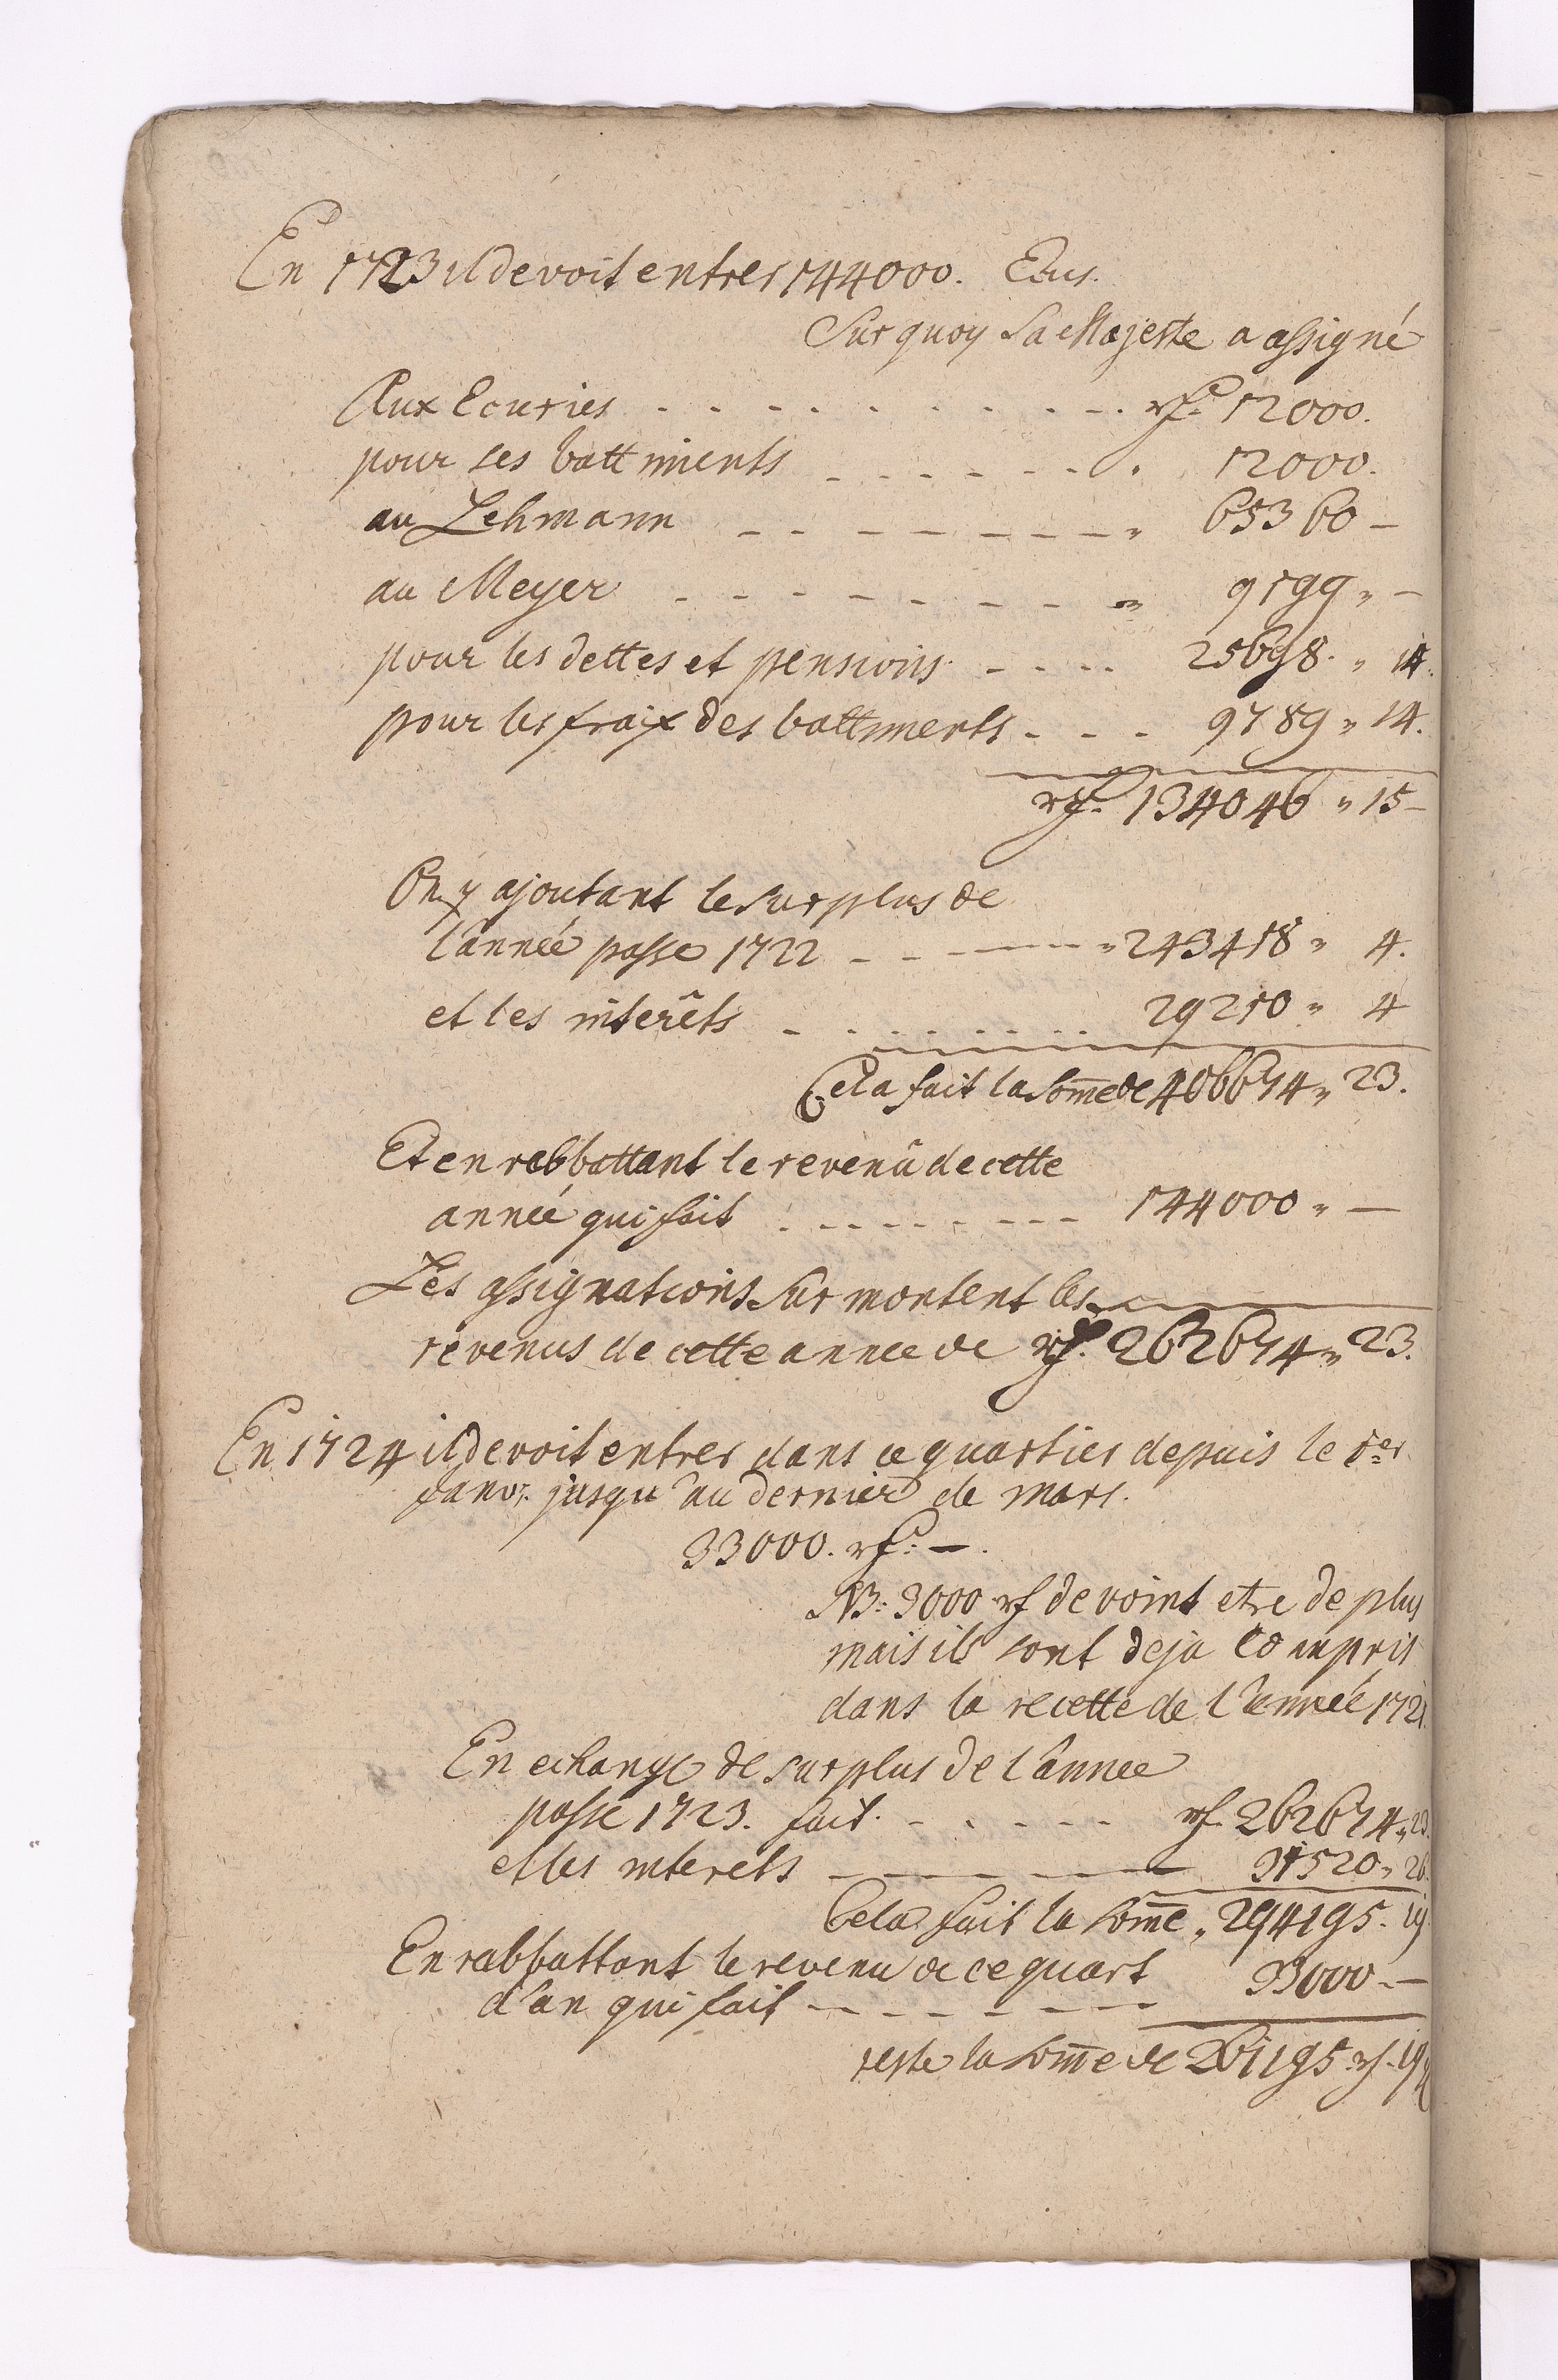 En 1723 il devoit entrer 144000. Ecus.
Sur quoy Sa Majeste a assigné
Aux Ecuries . . . . . . . . . . rf. 12000.
pour ses battiments - - - - - - . 12000.
au Lehmann - - - - - - - - " 65360 -
au Meyer - - - - - - - - " 9199 " -
pour les dettes et pensions - - - - 25698. " 1.
pour les fraix des battiments - - - 9789 " 14.
rf. 134046 " 15 -
En y ajoutant le surplus de
l'année passe 1722 - - - - " 243418 " 4.
et les interêts - . . . . . . . 29210 " 4
Cela fait la som̄e de 406674 " 23.
Et en rabbattant le revenû de cette
année qui fait . - - - - - - - 144000 " -
Les assignations surmontent les
revenus de cette annee de rf. 262674 " 23.
En 1724 il devoit entrer dans ce quartier depuis le 1er
Janvr. jusqu'au dernier de mars.
33000. rf. -.
NB: 3000 rf devoint etre de plus
mais ils sont deja compris
dans la recette de l'année 1721.
En echange de surplus de l'annee
passe 1723. fait. - - - - - rf. 262674 " 23.
et les interets - - - - 31520 " 20.
Cela fait la som̄e " 294195. 19
En rabbattant le revenu de ce quart
d'an qui fait - - - - - - 33000 - -
reste la som̄e de 261195 rf. 19